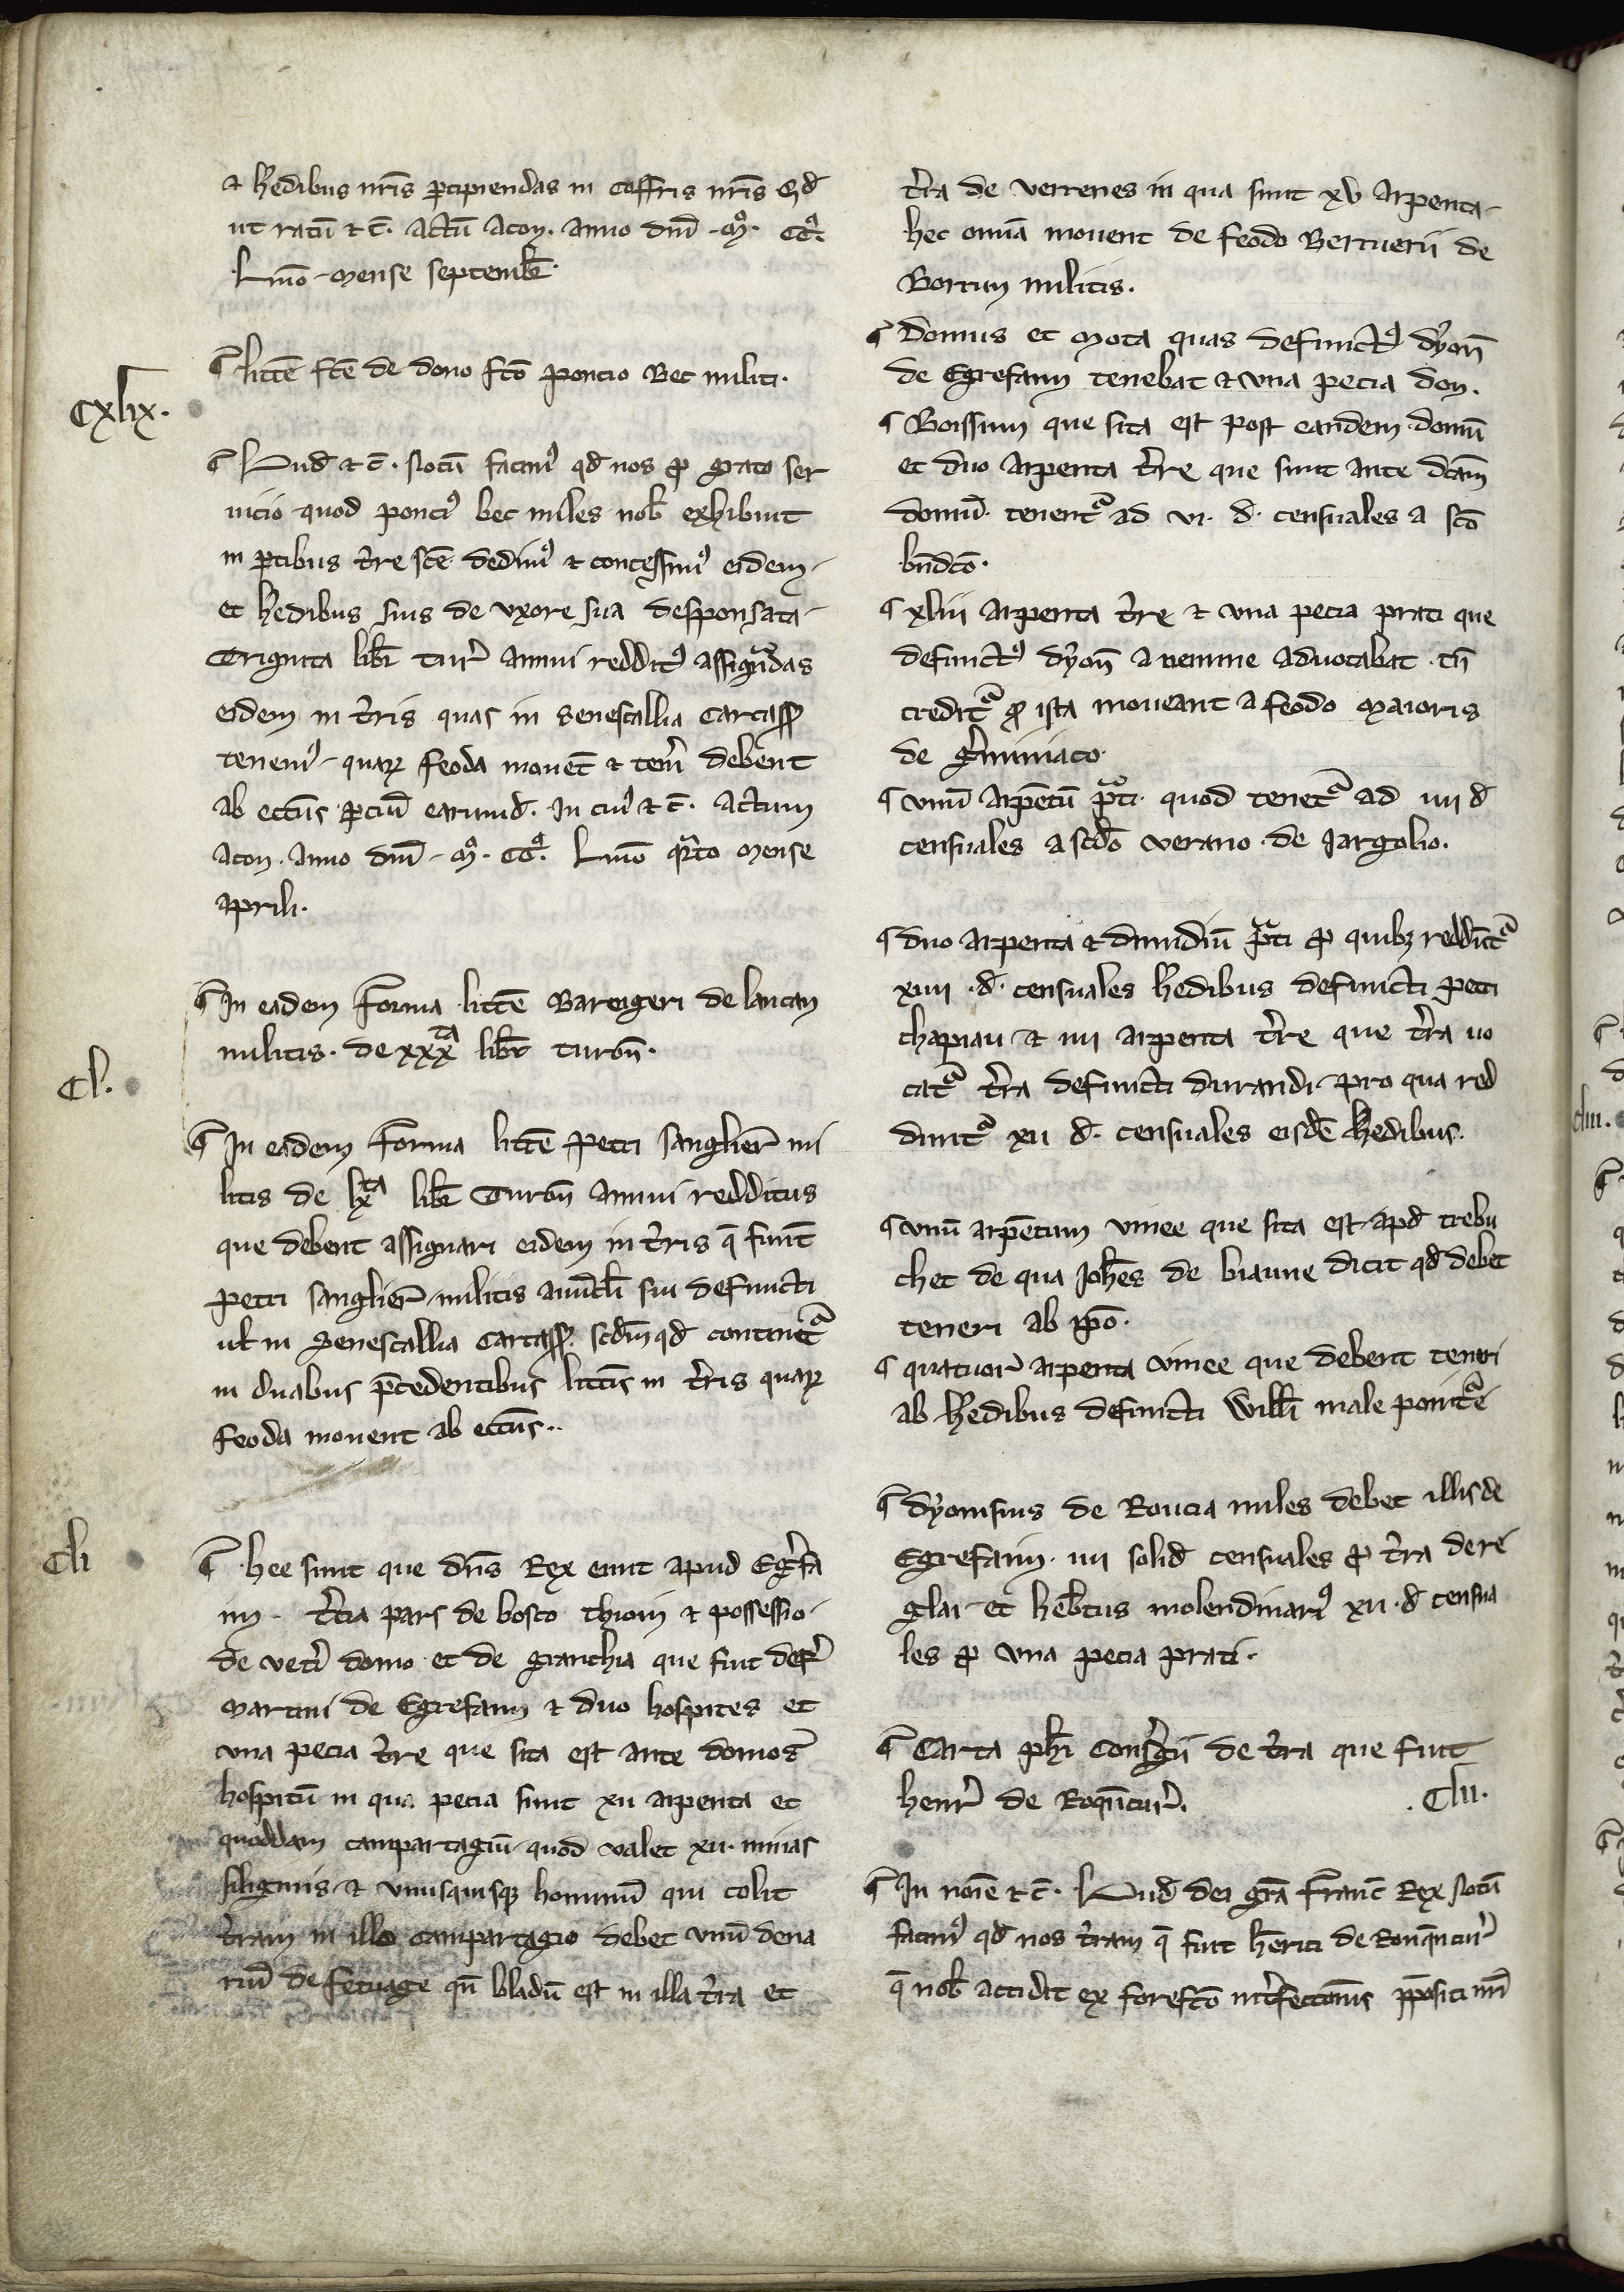 ⁊ h̾edibus nr̄is ꝑcipiendas in coffris nr̄is Qđ
ut ratū ⁊ c̄. actū acon. anno dnī. mͦ. ccͦ.
Lmō. mense septemb̄.
¶ litte᷒ fcē de dono fcō poncio Bec militi.
Cxlix.
¶ Lud ⁊ c̄. Notū facimꝰ qđ nos ꝓ grato ser
uicio quod poncꝰ bec miles nob̄ exhibuit
in ꝑtibus tr̄re scē dedimꝰ ⁊ concessimꝰ eidem
et h̾edibus suis de uxore sua desponsata
Triginta lib̄ tur̄ annui redditꝰ assignandas
eidem in tr̄ris quas in senescallia Carcass̄
tenemꝰ quaꝝ feoda mouēt ⁊ tenr̄i debent
ab eccīis ꝑciū earumđ. In cuiꝰ ⁊ c̄. Actum
acon. anno dnī. mͦ. ccͦ. Lmō qᵃrto mense
aprili.
¶ In eadem forma litte᷒ Barengeri de laucan
militis. de xxxᵗᵃ libr̄ turon̄.
Cl.
¶ In eadem forma litte᷒ petri sanglier̄ mi
litis de lxᵗᵃ lib̄ Turon̄ annui redditus
que debent assignari eidem in tr̄ris q̄ fuīt
petri sanglier̄ militis auūcli sui defuncti
ul̄ in Senescallia Carcass̄. scd̄m qđ continet᷑
in duabus p̄cedentibus litt̄is in tr̄ris quaꝝ
feoda mouent ab eccīis..
Cli
¶ hee sunt que dn̄s Rex emit apud Egrefa
im. tc̄ia pars de bosco thioin ⁊ possessio
de vetr̄i domo et de granchia que fuit def̄
Martini de Egrefaim ⁊ duo hospites et
vna pecia tr̄re que sita est ante domos
hospitū in qua pecia sunt xii arpenta et
quoddam campartagiū quod valet xii. minas
siliginis ⁊ vnusquisqꝫ hominū qui colit
tr̄ram in illo campartagio debet vnū dena
riū de festuage qn̄ bladū est in illa tr̄ra et
tr̄ra de verrenes in qua sunt xv arpenta
hec omīa mouent de feodo Bertuerii de
Borrun militis.
¶ Domus et Mota quas defunctꝰ dyon̄
de Egrefaim tenebat ⁊ vna pecia don.
¶ Boissum que sita est post eandem domū
et duo arpenta tr̄re que sunt ante dc̄am
domū. tenent᷑ ad vi. đ. censuales a scō
bn̄dcō.
¶ xliii arpenta tr̄re ⁊ vna pecia prati que
defunctꝰ dyon̄ a nemine aduocabat. tn̄
credit᷑ ꝙ ista moueant a feodo Maioris
de g̾miniaco
¶ vnū arpētū pᵃti quod tenet᷑ ad iiii đ
censuales a scd̄o verano de iargolio.
¶ duo arpenta ⁊ dimidiū pᵃti ꝓ quibꝫ reddūt᷑
xiiii .đ. censuales h̾edibus defuncti petri
chapiau ⁊ iiii arpenta tr̄re que tr̄ra uo
cat᷑ tr̄ra defuncti durandi pro qua red
dunt᷑ xii đ. censuales eisdē h̾edibus.
¶ vnū arpētum vinee que sita est apđ trebu
chet de qua Joh̄es de biaune dicit qđ debet
teneri ab ip̄o.
¶ quatuor arpenta vinee que debent teneri
ab h̾edibus defuncti Will̄i male
¶ dyonisius de Roucia miles debet illis de
Egrefaim. iiii soliđ censuales ꝓ tr̄ra de re
glai et heb̄tus molendinarꝰ xii. đ censua
les ꝓ vna pecia prati.
¶ Carta ph̄i Consergii de tr̄ra que fuit
henr̄ de Roquēcur̄.
.Clii.
¶ In noīe ⁊ c̄. Lud dei grā Franc̄ Rex Notū
facimꝰ qđ nos tr̄ram q̄ fuit hēnrici de Rouqūcur̄
q̄ nob̄ accidit ex forefcō int̾fectionis p̄positi nrī
cliii.